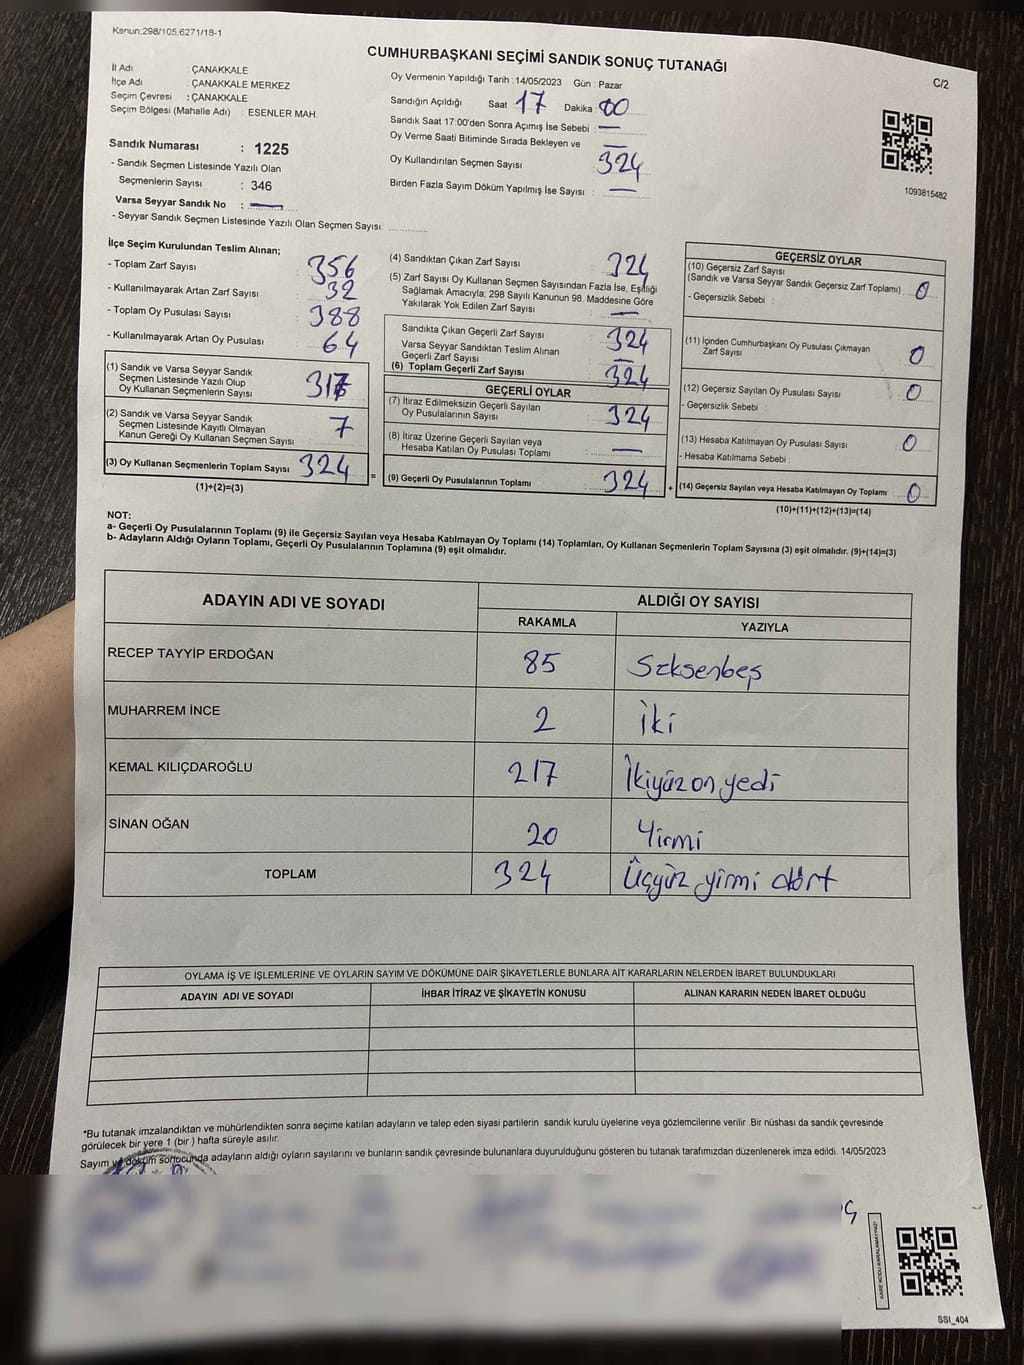 Kanun;298/105,6271/18-1
CUMHURBAŞKANI SEÇİMİ SANDIK SONUÇ TUTANAĞI
C/2
İl Adı : ÇANAKKALE
İlçe Adı : ÇANAKKALE MERKEZ
Seçim Çevresi : ÇANAKKALE
Seçim Bölgesi (Mahalle Adı) : ESENLER MAH.
Sandık Numarası : 1225
- Sandık Seçmen Listesinde Yazılı Olan
Seçmenlerin Sayısı : 346
Varsa Seyyar Sandık No : —
- Seyyar Sandık Seçmen Listesinde Yazılı Olan Seçmen Sayısı:
Oy Vermenin Yapıldığı Tarih : 14/05/2023 Gün : Pazar
Sandığın Açıldığı Saat 17 Dakika : 00
Sandık Saat 17:00'den Sonra Açımış İse Sebebi : —
Oy Verme Saati Bitiminde Sırada Bekleyen ve —
Oy Kullandırılan Seçmen Sayısı : 324
Birden Fazla Sayım Döküm Yapılmış İse Sayısı : —
1093815482
İlçe Seçim Kurulundan Teslim Alınan;
- Toplam Zarf Sayısı : 356
- Kullanılmayarak Artan Zarf Sayısı : 32
- Toplam Oy Pusulası Sayısı : 388
- Kullanılmayarak Artan Oy Pusulası : 64
(1) Sandık ve Varsa Seyyar Sandık
Seçmen Listesinde Yazılı Olup
Oy Kullanan Seçmenlerin Sayısı : 317
(2) Sandık ve Varsa Seyyar Sandık
Seçmen Listesinde Kayıtlı Olmayan
Kanun Gereği Oy Kullanan Seçmen Sayısı : 7
(3) Oy Kullanan Seçmenlerin Toplam Sayısı : 324 =
(1)+(2)=(3)
(4) Sandıktan Çıkan Zarf Sayısı : 324
(5) Zarf Sayısı Oy Kullanan Seçmen Sayısından Fazla İse, Eşitliği
Sağlamak Amacıyla; 298 Sayılı Kanunun 98. Maddesine Göre
Yakılarak Yok Edilen Zarf Sayısı : —
Sandıkta Çıkan Geçerli Zarf Sayısı : 324
Varsa Seyyar Sandıktan Teslim Alınan
Geçerli Zarf Sayısı : —
(6) Toplam Geçerli Zarf Sayısı : 324
GEÇERLİ OYLAR
(7) İtiraz Edilmeksizin Geçerli Sayılan
Oy Pusulalarının Sayısı : 324
(8) İtiraz Üzerine Geçerli Sayılan veya
Hesaba Katılan Oy Pusulası Toplamı : —
(9) Geçerli Oy Pusulalarının Toplamı : 324 +
GEÇERSİZ OYLAR
(10) Geçersiz Zarf Sayısı
(Sandık ve Varsa Seyyar Sandık Geçersiz Zarf Toplamı) : 0
- Geçersizlik Sebebi :
(11) İçinden Cumhurbaşkanı Oy Pusulası Çıkmayan
Zarf Sayısı : 0
(12) Geçersiz Sayılan Oy Pusulası Sayısı : 0
- Geçersizlik Sebebi :
(13) Hesaba Katılmayan Oy Pusulası Sayısı : 0
- Hesaba Katılmama Sebebi :
(14) Geçersiz Sayılan veya Hesaba Katılmayan Oy Toplamı : 0
(10)+(11)+(12)+(13)=(14)
NOT:
a- Geçerli Oy Pusulalarının Toplamı (9) ile Geçersiz Sayılan veya Hesaba Katılmayan Oy Toplamı (14) Toplamları, Oy Kullanan Seçmenlerin Toplam Sayısına (3) eşit olmalıdır. (9)+(14)=(3)
b- Adayların Aldığı Oyların Toplamı, Geçerli Oy Pusulalarının Toplamına (9) eşit olmalıdır.
ADAYIN ADI VE SOYADI ALDIĞI OY SAYISI
RAKAMLA YAZIYLA
RECEP TAYYİP ERDOĞAN 85 Seksenbeş
MUHARREM İNCE 2 İki
KEMAL KILIÇDAROĞLU 217 İkiyüz on yedi
SİNAN OĞAN 20 Yirmi
TOPLAM 324 Üçyüz yirmi dört
OYLAMA İŞ VE İŞLEMLERİNE VE OYLARIN SAYIM VE DÖKÜMÜNE DAİR ŞİKAYETLERLE BUNLARA AİT KARARLARIN NELERDEN İBARET BULUNDUKLARI
ADAYIN ADI VE SOYADI İHBAR İTİRAZ VE ŞİKAYETİN KONUSU ALINAN KARARIN NEDEN İBARET OLDUĞU
*Bu tutanak imzalandıktan ve mühürlendikten sonra seçime katılan adayların ve talep eden siyasi partilerin sandık kurulu üyelerine veya gözlemcilerine verilir .Bir nüshası da sandık çevresinde
görülecek bir yere 1 (bir ) hafta süreyle asılır.
Sayım ve döküm sonucunda adayların aldığı oyların sayılarını ve bunların sandık çevresinde bulunanlara duyurulduğunu gösteren bu tutanak tarafımızdan düzenlenerek imza edildi. 14/05/2023
SSI_404